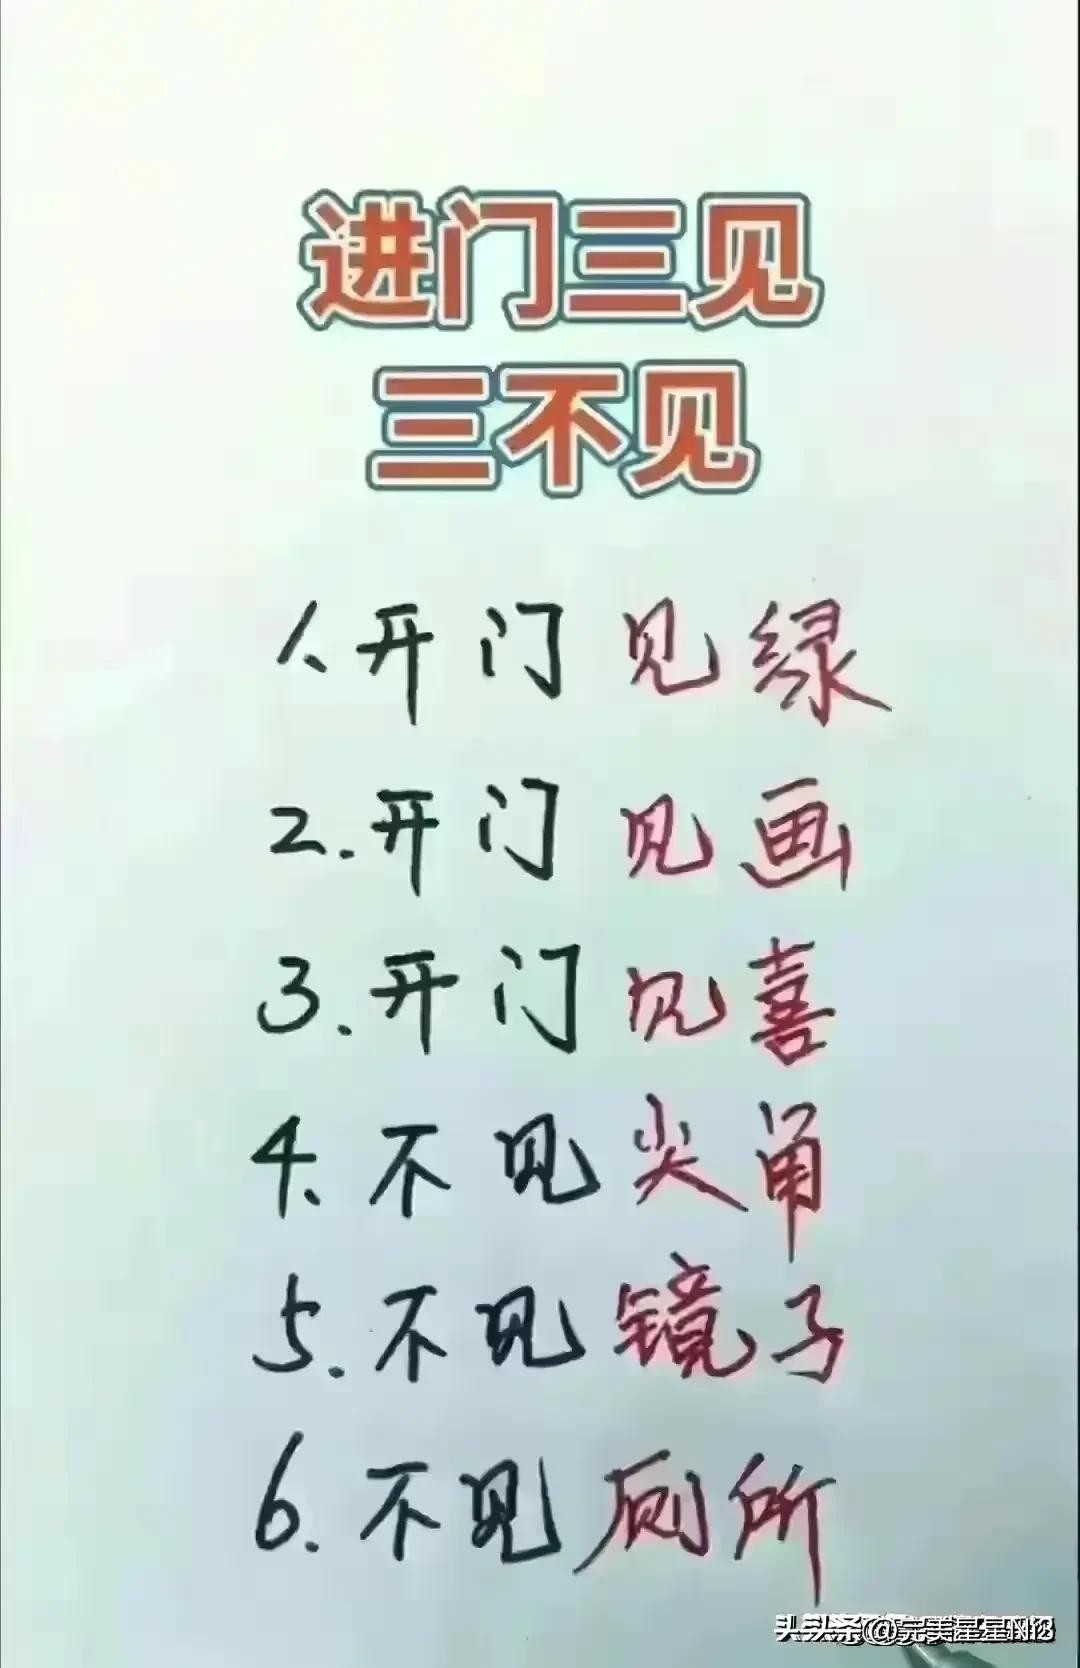 进门三见
三不见
1、开门见绿
2.开门见画
3.开门见喜
4、不见尖角
5.不见镜子
6.不见厕所
头条@完美星星